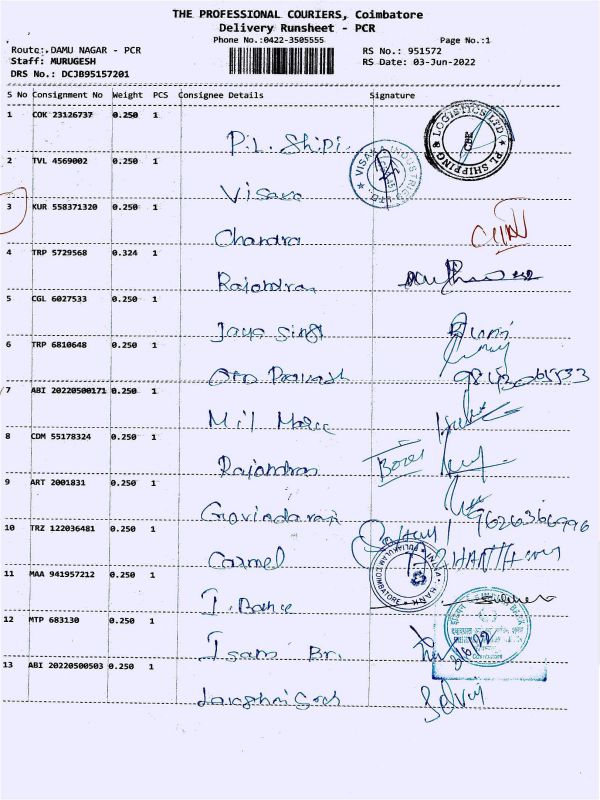 THE PROFESSIONAL COURIERS, Coimbatore
Delivery Runsheet - PCR
Phone No.:0422-3505555
Page No.:1
Route:,DAMU NAGAR - PCR
RS No.: 951572
Staff: MURUGESH
RS Date: 03-Jun-2022
DRS No.: DCJB95157201
S No Consignment No Weight PCS Consignee Details Signature
1 COK 23126737 0.250 1
P.L. Shipi.
PL SHIPPING & LOGISTICS LTD CBE
2 TVL 4569002 0.250 1
Visaka
VISAKA INDUSTRIES LTD.
3 KUR 558371320 0.250 1
Chandra
4 TRP 5729568 0.324 1
Rajendran
5 CGL 6027533 0.250 1
Jaya Singh
6 TRP 6810648 0.250 1
7 ABI 20220500171 0.250 1
Mil
8 CDM 55178324 0.250 1
Rajendran
9 ART 2001831 0.250 1
Govindaraj
9626366996
10 TRZ 122036481 0.250 1
Carmel
11 MAA 941957212 0.250 1
I. Bank
COIMBATORE
12 MTP 683130 0.250 1
Br.
13 ABI 20220500503 0.250 1
Selvi